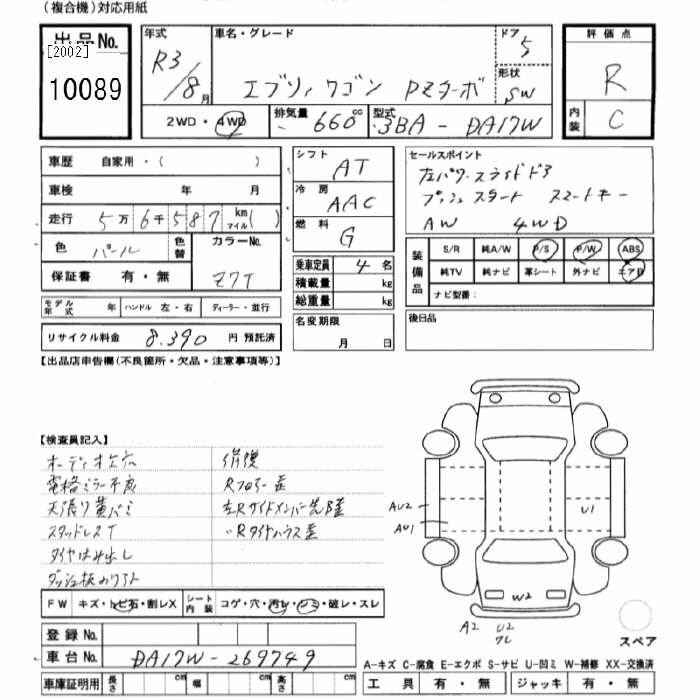 (複合機)対応用紙
出品No.
[2002]
10089
年式
R3/8月
車名・グレード
エブリィワゴン PZターボ
ドア
5
形状
SW
2WD・4WD
排気量
660cc
型式
3BA-DA17W
評価点
R
内装
C
車歴 自家用・( )
車検 年 月
走行 5万6千587km マイル( )
色 パール
色替
カラーNo.
Z7T
保証書 有・無
モデル年式 年
ハンドル 左・右
ディーラー・並行
リサイクル料金 8.390円 預託済
シフト AT
冷房 AAC
燃料 G
乗車定員 4名
積載量 kg
総重量 kg
名変期限
月 日
セールスポイント
左パワースライドドア
プッシュスタート スマートキー
AW 4WD
装備品
S/R 純A/W P/S P/W ABS
純TV 純ナビ 革シート 外ナビ エアB
ナビ型番:
後日品
【出品店申告欄(不良箇所・欠品・注意事項等)】
【検査員記入】
オーディオ
電格ミラー不良
天張り黄バミ
スタッドレスT
タイヤはみ出し
修復
Rフロアー歪
左Rサイドメンバー先歪
〃Rタイヤハウス歪
AU2
AU1
U1
W2
A2
U2
FW キズ・トビ石・割レX
シート内装 コゲ・穴・汚レ・シミ・破レ・スレ
登録No.
車台No. DA17W-269749
車庫証明用 長さ cm 幅 cm 高さ cm
スペア
A-キズ C-腐食 E-エクボ S-サビ U-凹ミ W-補修 XX-交換済
工具 有・無 ジャッキ 有・無